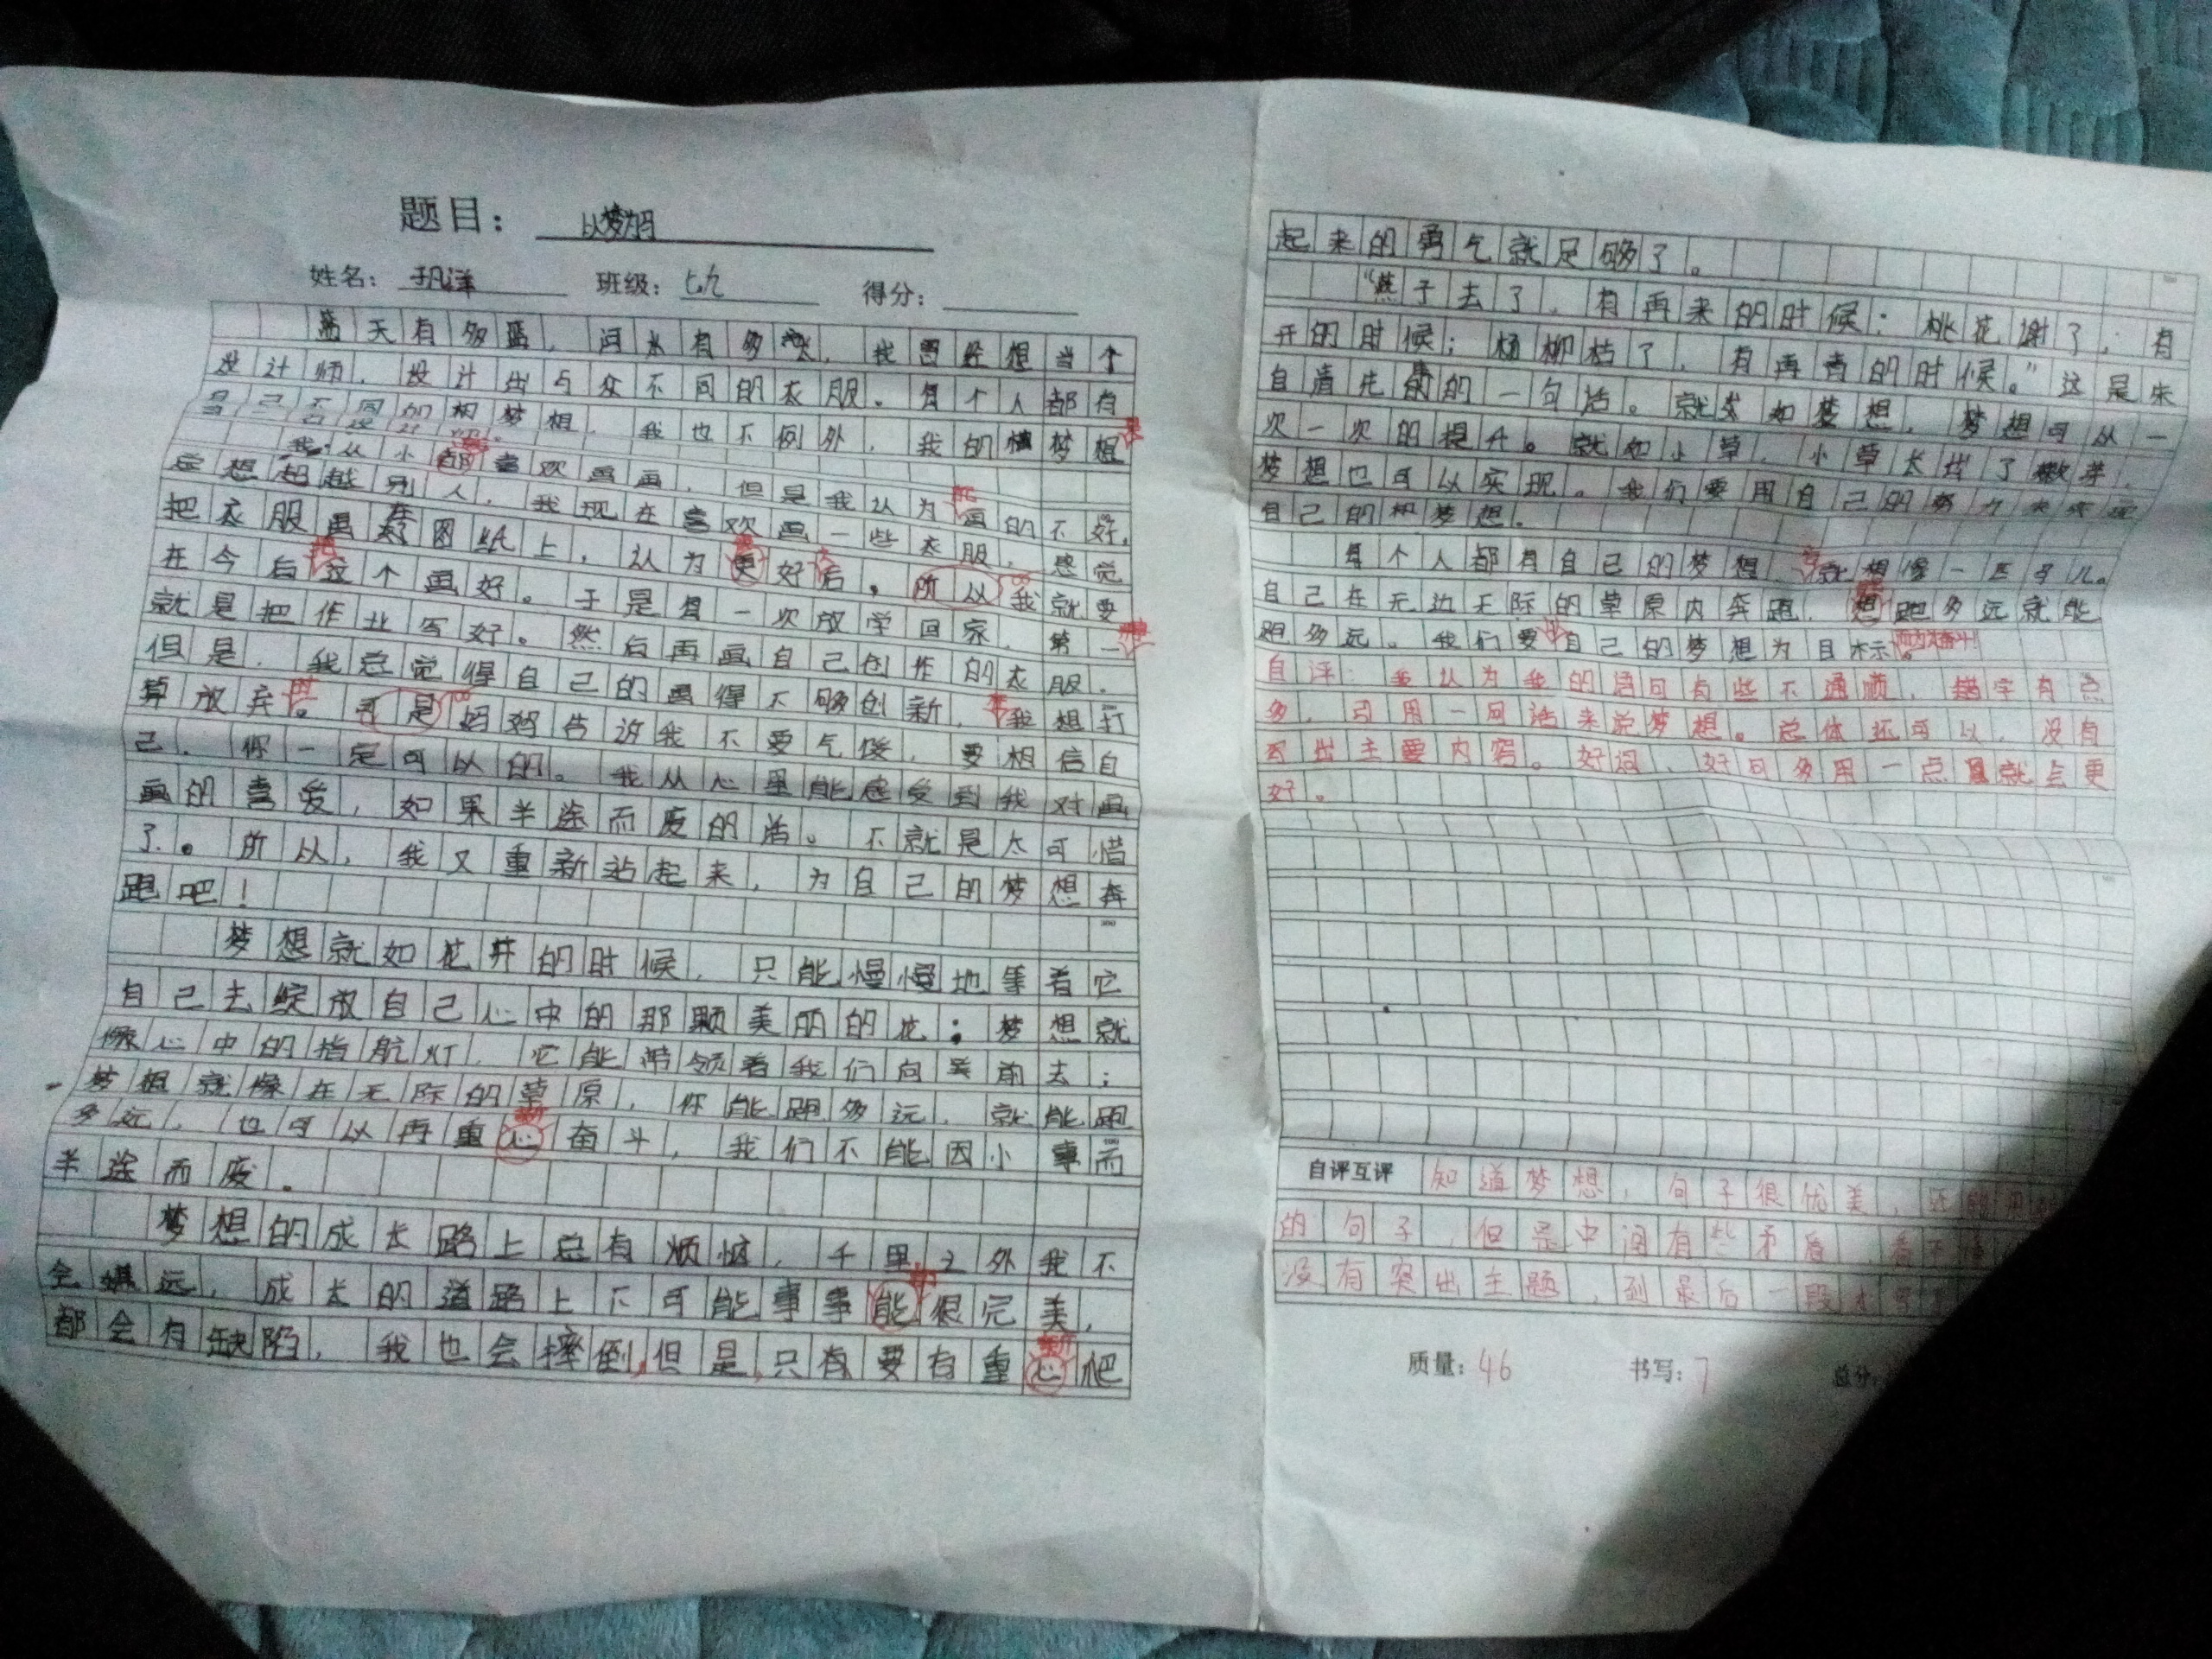 题目：以梦为
姓名： 班级：七九 得分：
蓝天有多蓝，河水有多，我曾经想当个
设计师，设计出与众不同的衣服。每个人都有
自己不同的梦想，我也不例外，我的梦想是
我从小都喜欢画画，但是我认为画的不好，
总想超越别人，我现在喜欢画一些衣服，感觉
把衣服画在图纸上，认为更好后。所以我就要
在今后把这个画好。于是每一次放学回家，第一
就是把作业写好。然后再画自己创作的衣服。
但是，我总觉得自己的画得不够创新，我想打
算放弃。可是妈妈告诉我不要气馁，要相信自
己，你一定可以的。我从心里能感受到我对画
画的喜爱，如果半途而废的话。不就是太可惜
了。所以，我又重新站起来，为自己的梦想奔
跑吧！
梦想就如花开的时候，只能慢慢地等着它
自己去绽放自己心中的那颗美丽的花；梦想就
像心中的指航灯，它能带领着我们向前去；
梦想就像在无际的草原，你能跑多远，就能跑
多远，也可以再重心奋斗，我们不能因小事而
新
半途而废。
梦想的成长路上总有烦恼，千里之外我不
会嫌远，成长的道路上不可能事事能很完美，
都会有缺陷，我也会摔倒，但是，只有要有重心爬
新
起来的勇气就足够了。
“燕子去了，有再来的时候；桃花谢了，有
开的时候；杨柳枯了，有再青的时候。”这是朱
自清先的一句话。就如梦想，梦想可从一
次一次的提升。就如小草，小草长出了嫩芽，
梦想也可以实现。我们要用自己的努力去实现
自己的梦想。
每个人都有自己的梦想，就想像一匹马儿。
自己在无边无际的草原内奔跑，想跑多远就能
跑多远。我们要自己的梦想为目标
自评：我认为我的语句有些不通顺，错字有点
多，引用一句话来说梦想。总体还可以，没有
出主要内容。好词、好句多用一点就会更
好。
自评互评 知道梦想，句子很优美，还
的句子，但是中间有些矛盾，看不
没有突出主题，到最后一段才
质量：46 书写：7 总分：